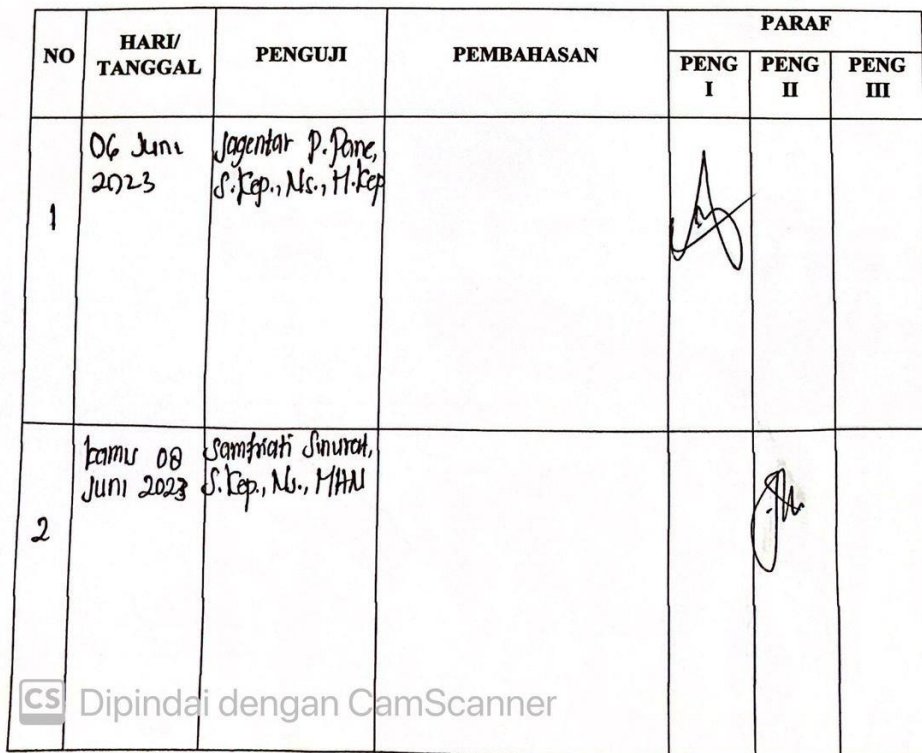 NO
HARI/
TANGGAL
PENGUJI
PEMBAHASAN
PARAF
PENG
I
PENG
II
PENG
III
1
06 Juni
2023
Jagentar P. Pane,
S.Kep., Ns., M.Kep
2
kamis 08
Juni 2023
Samfriati Sinurat,
S.Kep., Ns., MAN
CS Dipindai dengan CamScanner